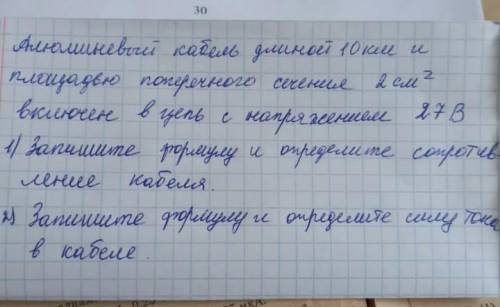 30
Алюминевый кабель длиной 10 км и
площадью поперечного сечения 2 см²
включен в цепь с напряжением 27 В
1) Запишите формулу и определите сопротив-
ление кабеля.
2) Запишите формулу и определите силу тока
в кабеле.